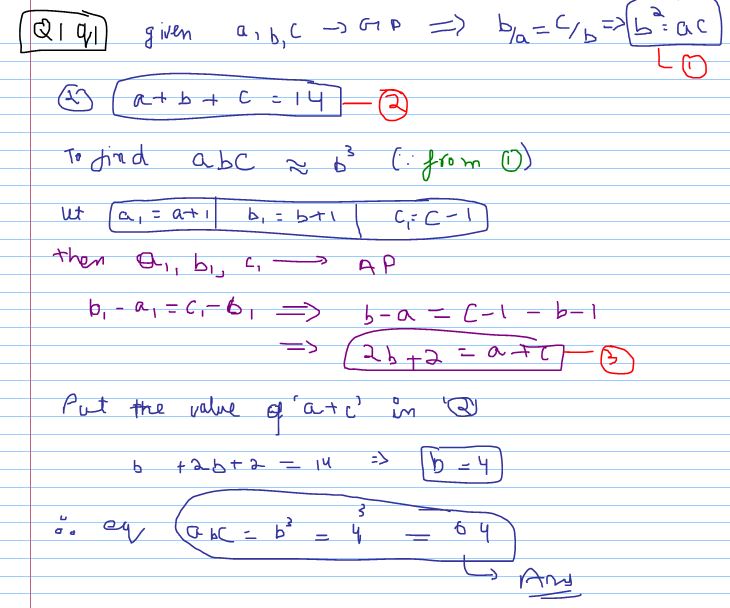 Q1 q1 given a, b, C → GP ⇒ b/a = C/b ⇒ b² = ac
①
I) a + b + c = 14 — ②
To find abC ≈ b³ (∵ from ①)
let a₁ = a+1 | b₁ = b+1 | C₁ = C-1
then a₁, b₁, c₁ → AP
b₁ - a₁ = c₁ - b₁ ⇒ b - a = C - 1 - b - 1
⇒ 2b + 2 = a + c — ③
Put the value of 'a+c' in ②
b + 2b + 2 = 14 ⇒ b = 4
∴ eq abC = b³ = 4³ = 64
→ Ans